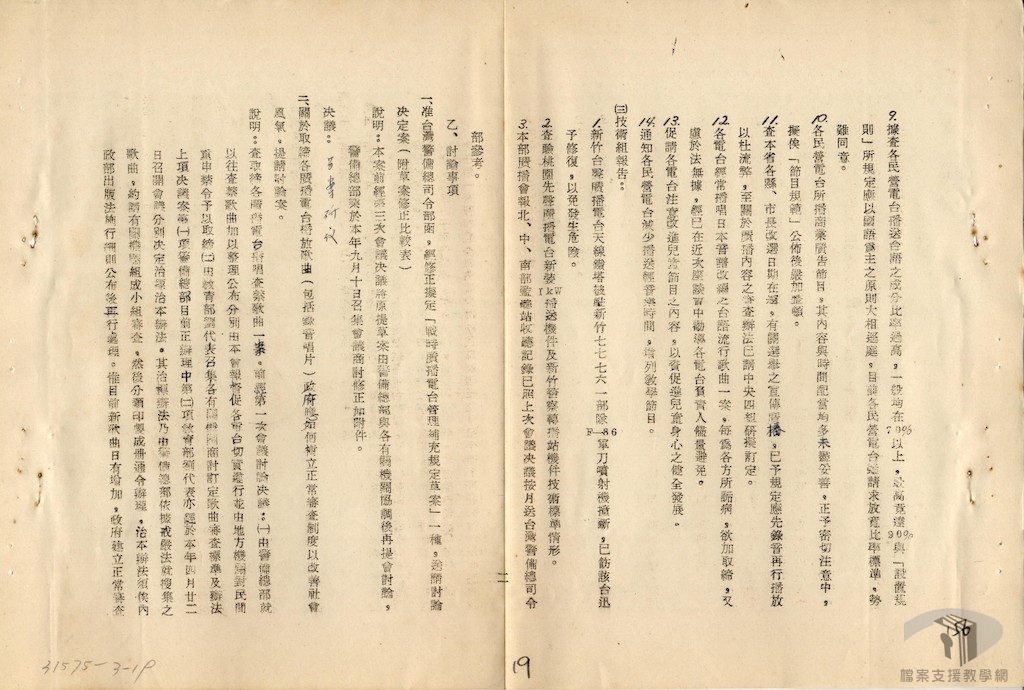 9.據查各民營電台播送台語之成分比率過高，一般均在70%以上，最高竟達90%與「設置規
則」所規定應以國語為主之原則大相逕庭，目前各民營電台雖請求放寬比率標準，勢
難同意。
10.各民營電台所播商業廣告節目，其內容與時間配當均多未盡妥善，正予密切注意中，
擬俟「節目規範」公佈後嚴加整頓。
11.查本省各縣、市長改選日期在邇，有關選舉之宣傳廣播，已予規定應先錄音再行播放
以杜流弊，至關於廣播內容之審查辦法已請中央四組研擬訂定。
12.各電台經常播唱日本音譜改編之台語流行歌曲一案，每為各方所詬病，欲加取締，又
慮於法無據，經已在近次座談會中勸導各電台負責人儘量避免。
13.促請各電台注意改進兒童節目之內容，以資促進兒童身心之健全發展。
14.通知各民營電台減少播送輕音樂時間，增列教學節目。
㈢技術組報告：
1.新竹台聲廣播電台天線鐵塔被駐新竹七七七六一部隊F-86軍刀噴射機撞斷，已飭該台迅
予修復，以免發生危險。
2.查驗桃園先聲廣播電台新裝1kW播送機件及新竹警察轉播站機件技術標準情形。
3.本部廣播會報北、中、南部監聽站收聽記錄已照上次會議決議按月送台灣警備總司令
部參考。
乙、討論事項
一、准台灣警備總司令部函，經修正擬定「戰時廣播電台管理補充規定草案」一種，送請討論
決定案（附草案修正比較表）
說明：本案前經第三次會議決議將原提草案由警備總部與各有關機關協調後再提會討論，
警備總部爰於本年九月十日召集會議商討修正如附件。
決議：
二、關於取締各廣播電台播放歌曲（包括錄音唱片）政府應如何樹立正常審查制度以改善社會
風氣，提請討論案。
說明：查取締各廣播電台播唱查禁歌曲一案，前經第一次會議討論決議：㈠由警備總部就
以往查禁歌曲加以整理公布分別由本會報督促各電台切實遵行並由地方機關對民間
重申禁令予以取締㈡由教育部劉代表召集各有關機關商討訂定歌曲審查標準及辦法
上項決議案第㈠項警備總部目前正辦理中第㈡項教育部劉代表亦經於本年四月廿二
日召開會議分別決定治標治本辦法。其治標辦法乃由警備總部依據戒嚴法就搜集之
歌曲，約請有關機關組成小組審查，然後分類印製成冊通令辦理，治本辦法須俟內
政部出版法施行細則公布後再行處理。惟目前新歌曲日有增加，政府建立正常審查
二
19
156
31575-3-19
檔案支援教學網